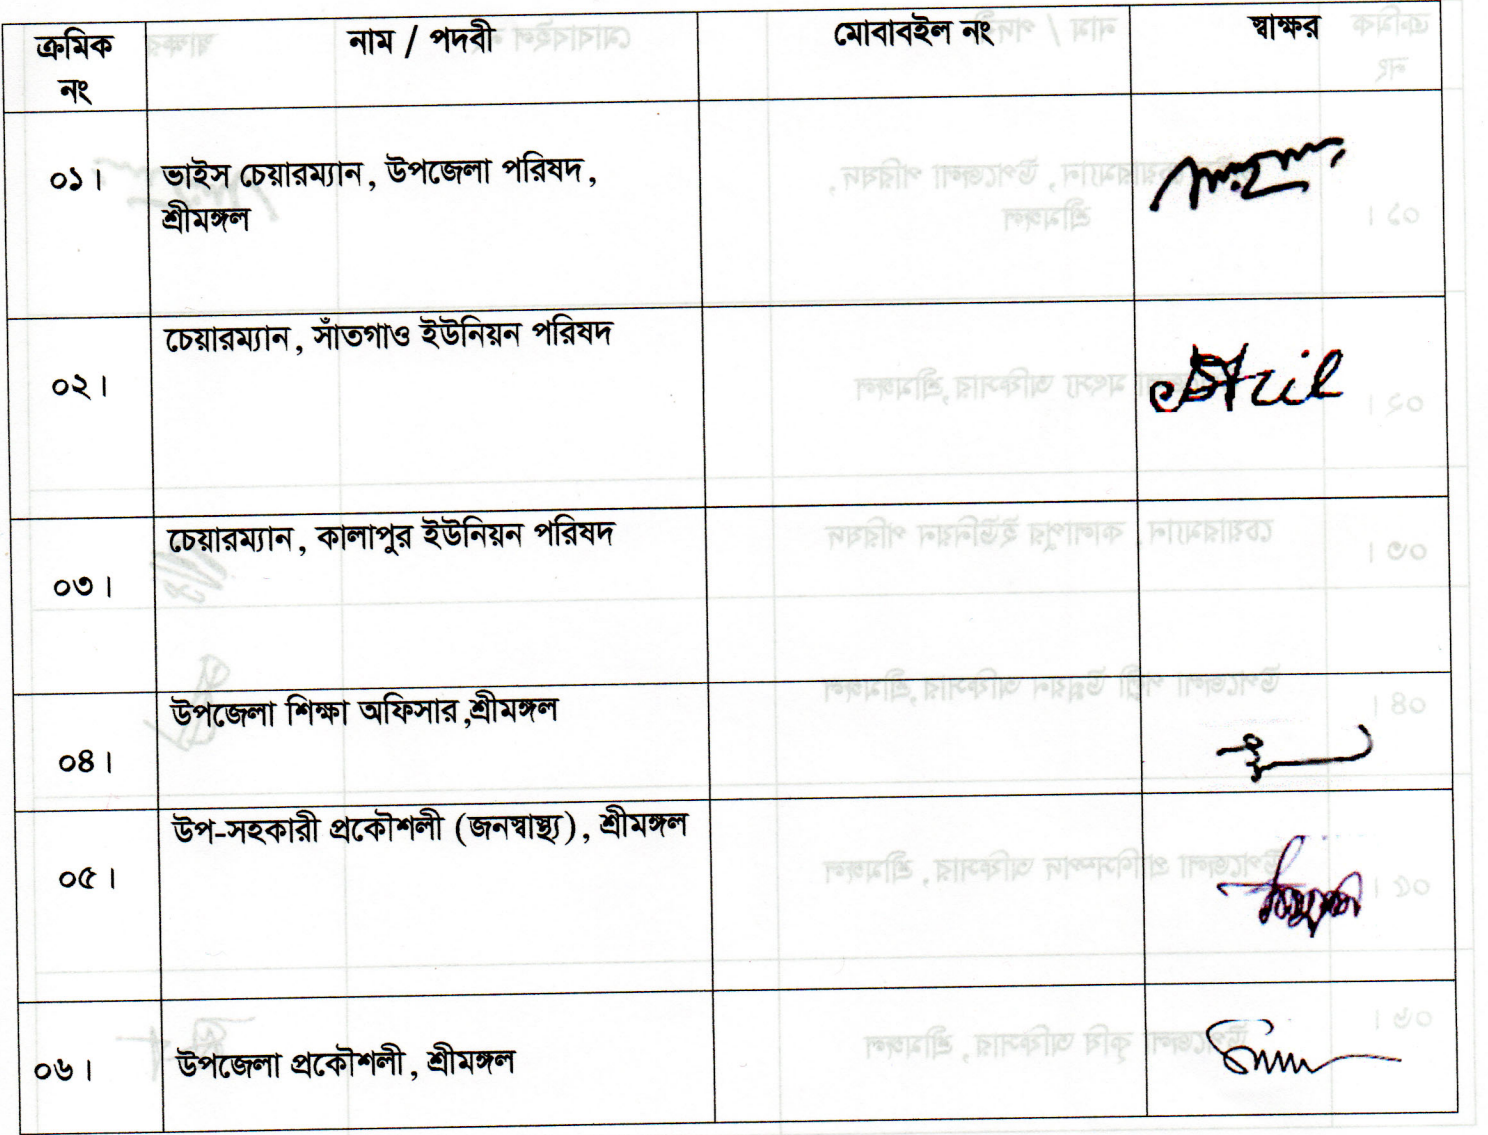 ক্রমিক নং নাম / পদবী মোবাবইল নং স্বাক্ষর
০১। ভাইস চেয়ারম্যান, উপজেলা পরিষদ,
শ্রীমঙ্গল
চেয়ারম্যান, সাঁতগাও ইউনিয়ন পরিষদ
০২।
চেয়ারম্যান, কালাপুর ইউনিয়ন পরিষদ
০৩।
উপজেলা শিক্ষা অফিসার,শ্রীমঙ্গল
০৪।
উপ-সহকারী প্রকৌশলী (জনস্বাস্থ্য), শ্রীমঙ্গল
০৫।
০৬। উপজেলা প্রকৌশলী, শ্রীমঙ্গল